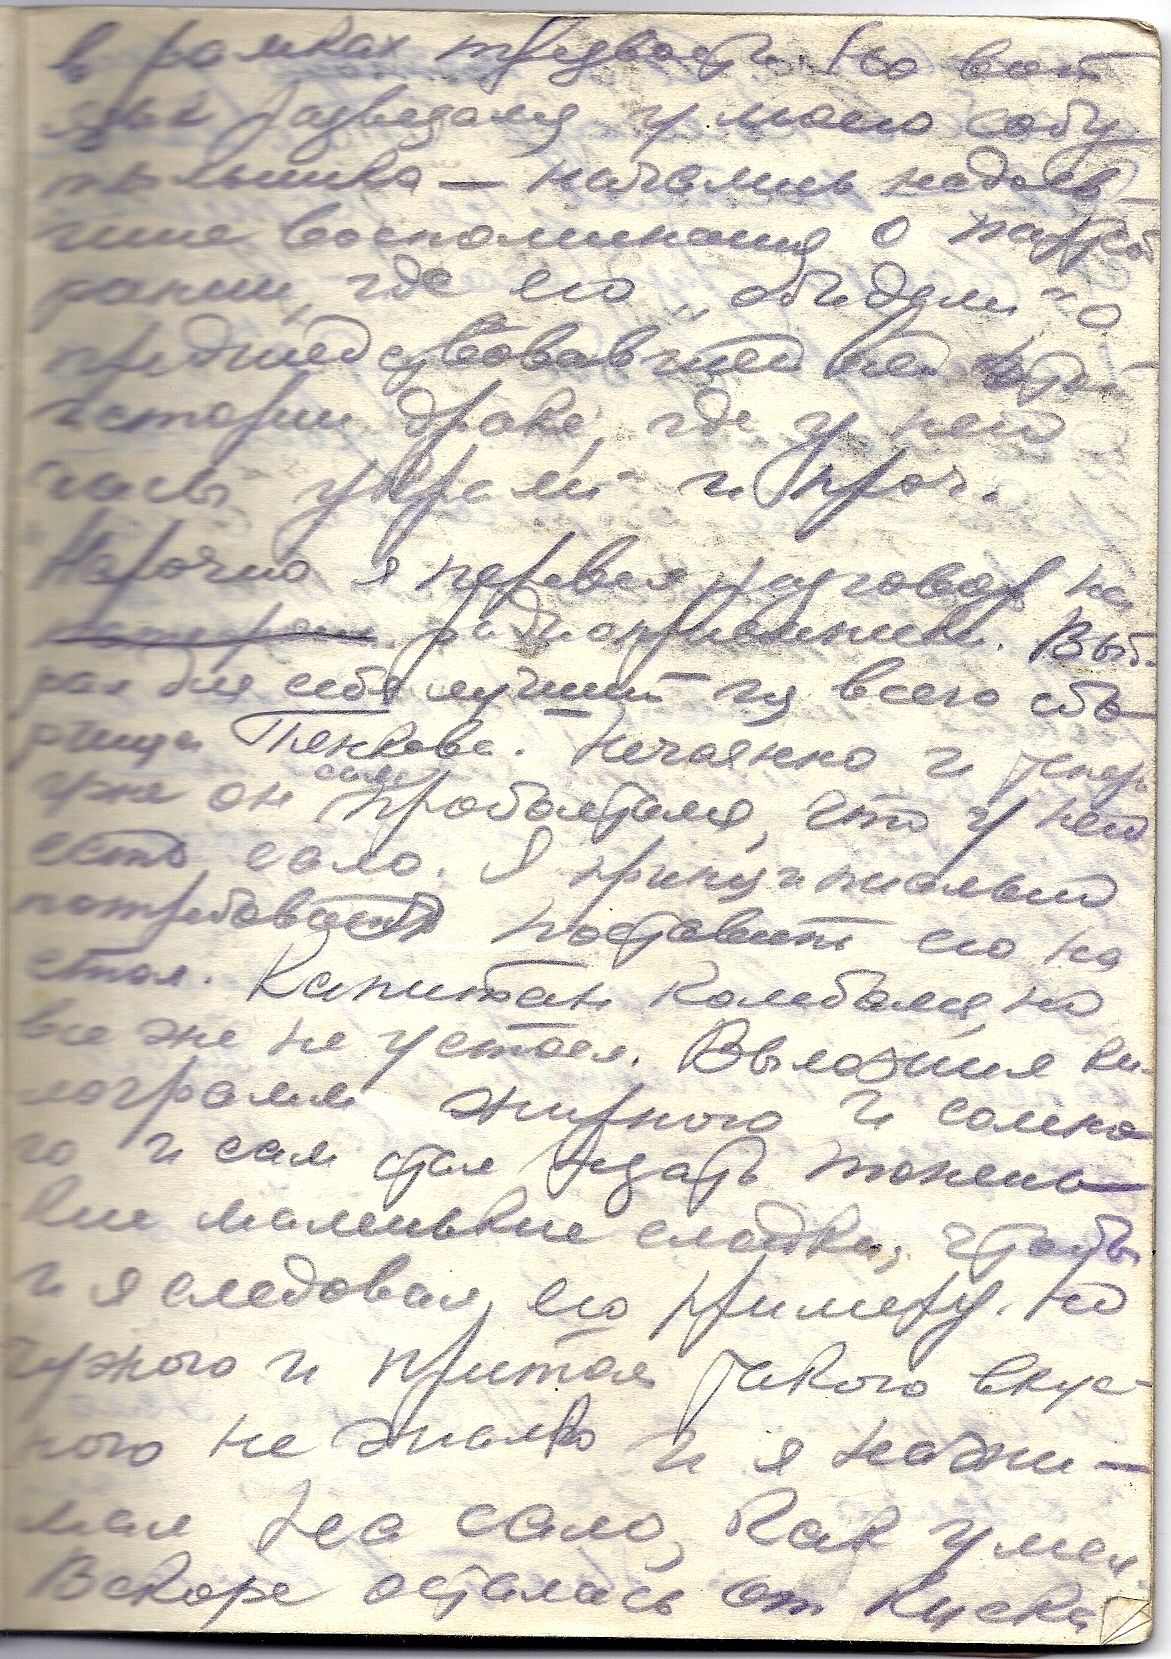 в рамках трезвости. Но вот
язык развязался у моего собу-
тыльника — начались надоев-
шие воспоминания о
где его „обидели“, о
предшедствовавшей этой
истории драке, где у него
часы украли и проч.
Нарочно я перевел разговор на
радиоприемники. Выб-
рал для себя лучший из всего сбо-
рища Пенкова. Нечаянно и теперь
уже он сам проболтался, что у него
есть сало. Я принципиально
потребовал поставить его на
стол. Капитан колебался, но
все же не устоял. Выложил ки-
лограмм жирного и солено-
го и сам стал резать тонень-
кие маленькие сладкие, чтобы
и я следовал его примеру. Но
чужого и притом такого вкус-
ного не жалко и я нажи-
мал на сало, как умел.
Вскоре осталась от куска